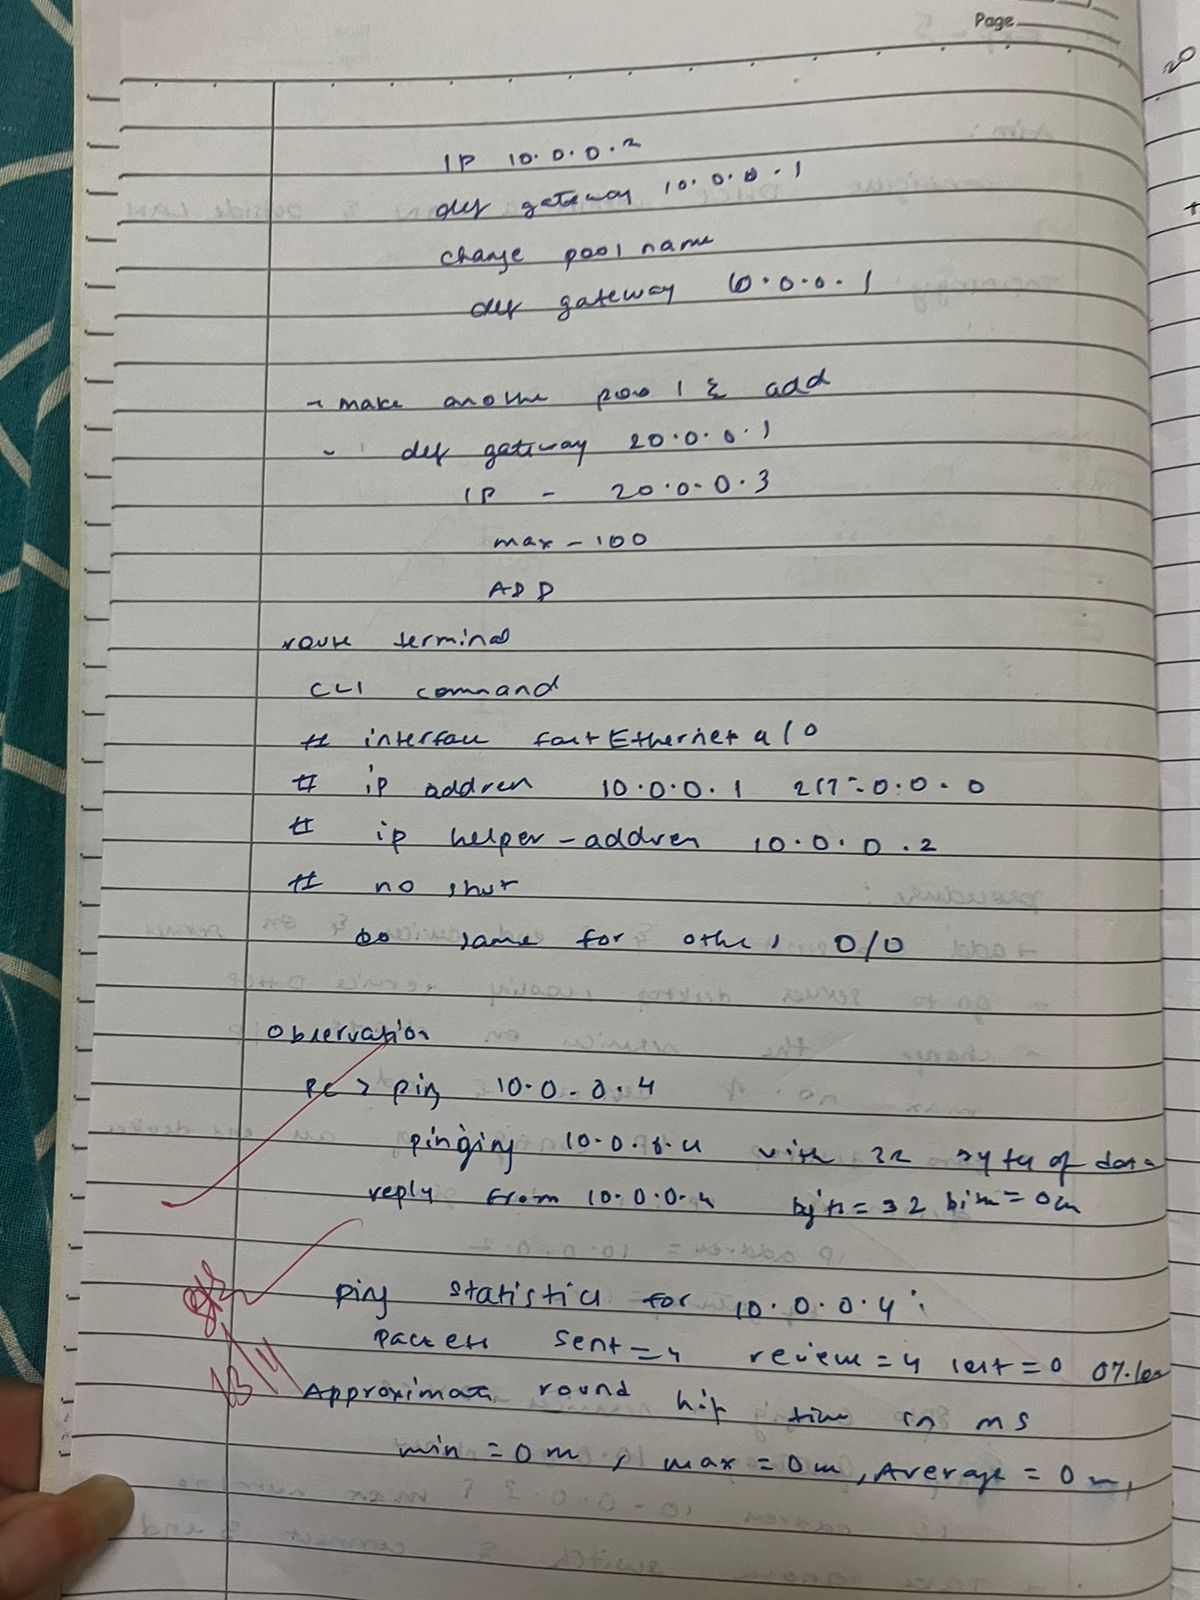 Page
20
IP 10.0.0.2
def gateway 10.0.0.1
change pool name
def gateway 10.0.0.1
→ make anothe pool & add
def gateway 20.0.0.1
IP - 20.0.0.3
max - 100
ADD
route terminal
CLI command
# interface fastEthernet 4/0
# ip address 10.0.0.1 255.0.0.0
# ip helper-address 10.0.0.2
# no shut
do same for other 0/0
Observation
PC > ping 10.0.0.4
pinging 10.0.0.4 with 32 bytes of data
reply from 10.0.0.4 bytes=32 time=0m
Ping statistics for 10.0.0.4:
Packets sent=4 receive=4 lost=0 0% loss
13/4
Approximate round trip time in ms
min = 0m, max = 0m, Average = 0m,